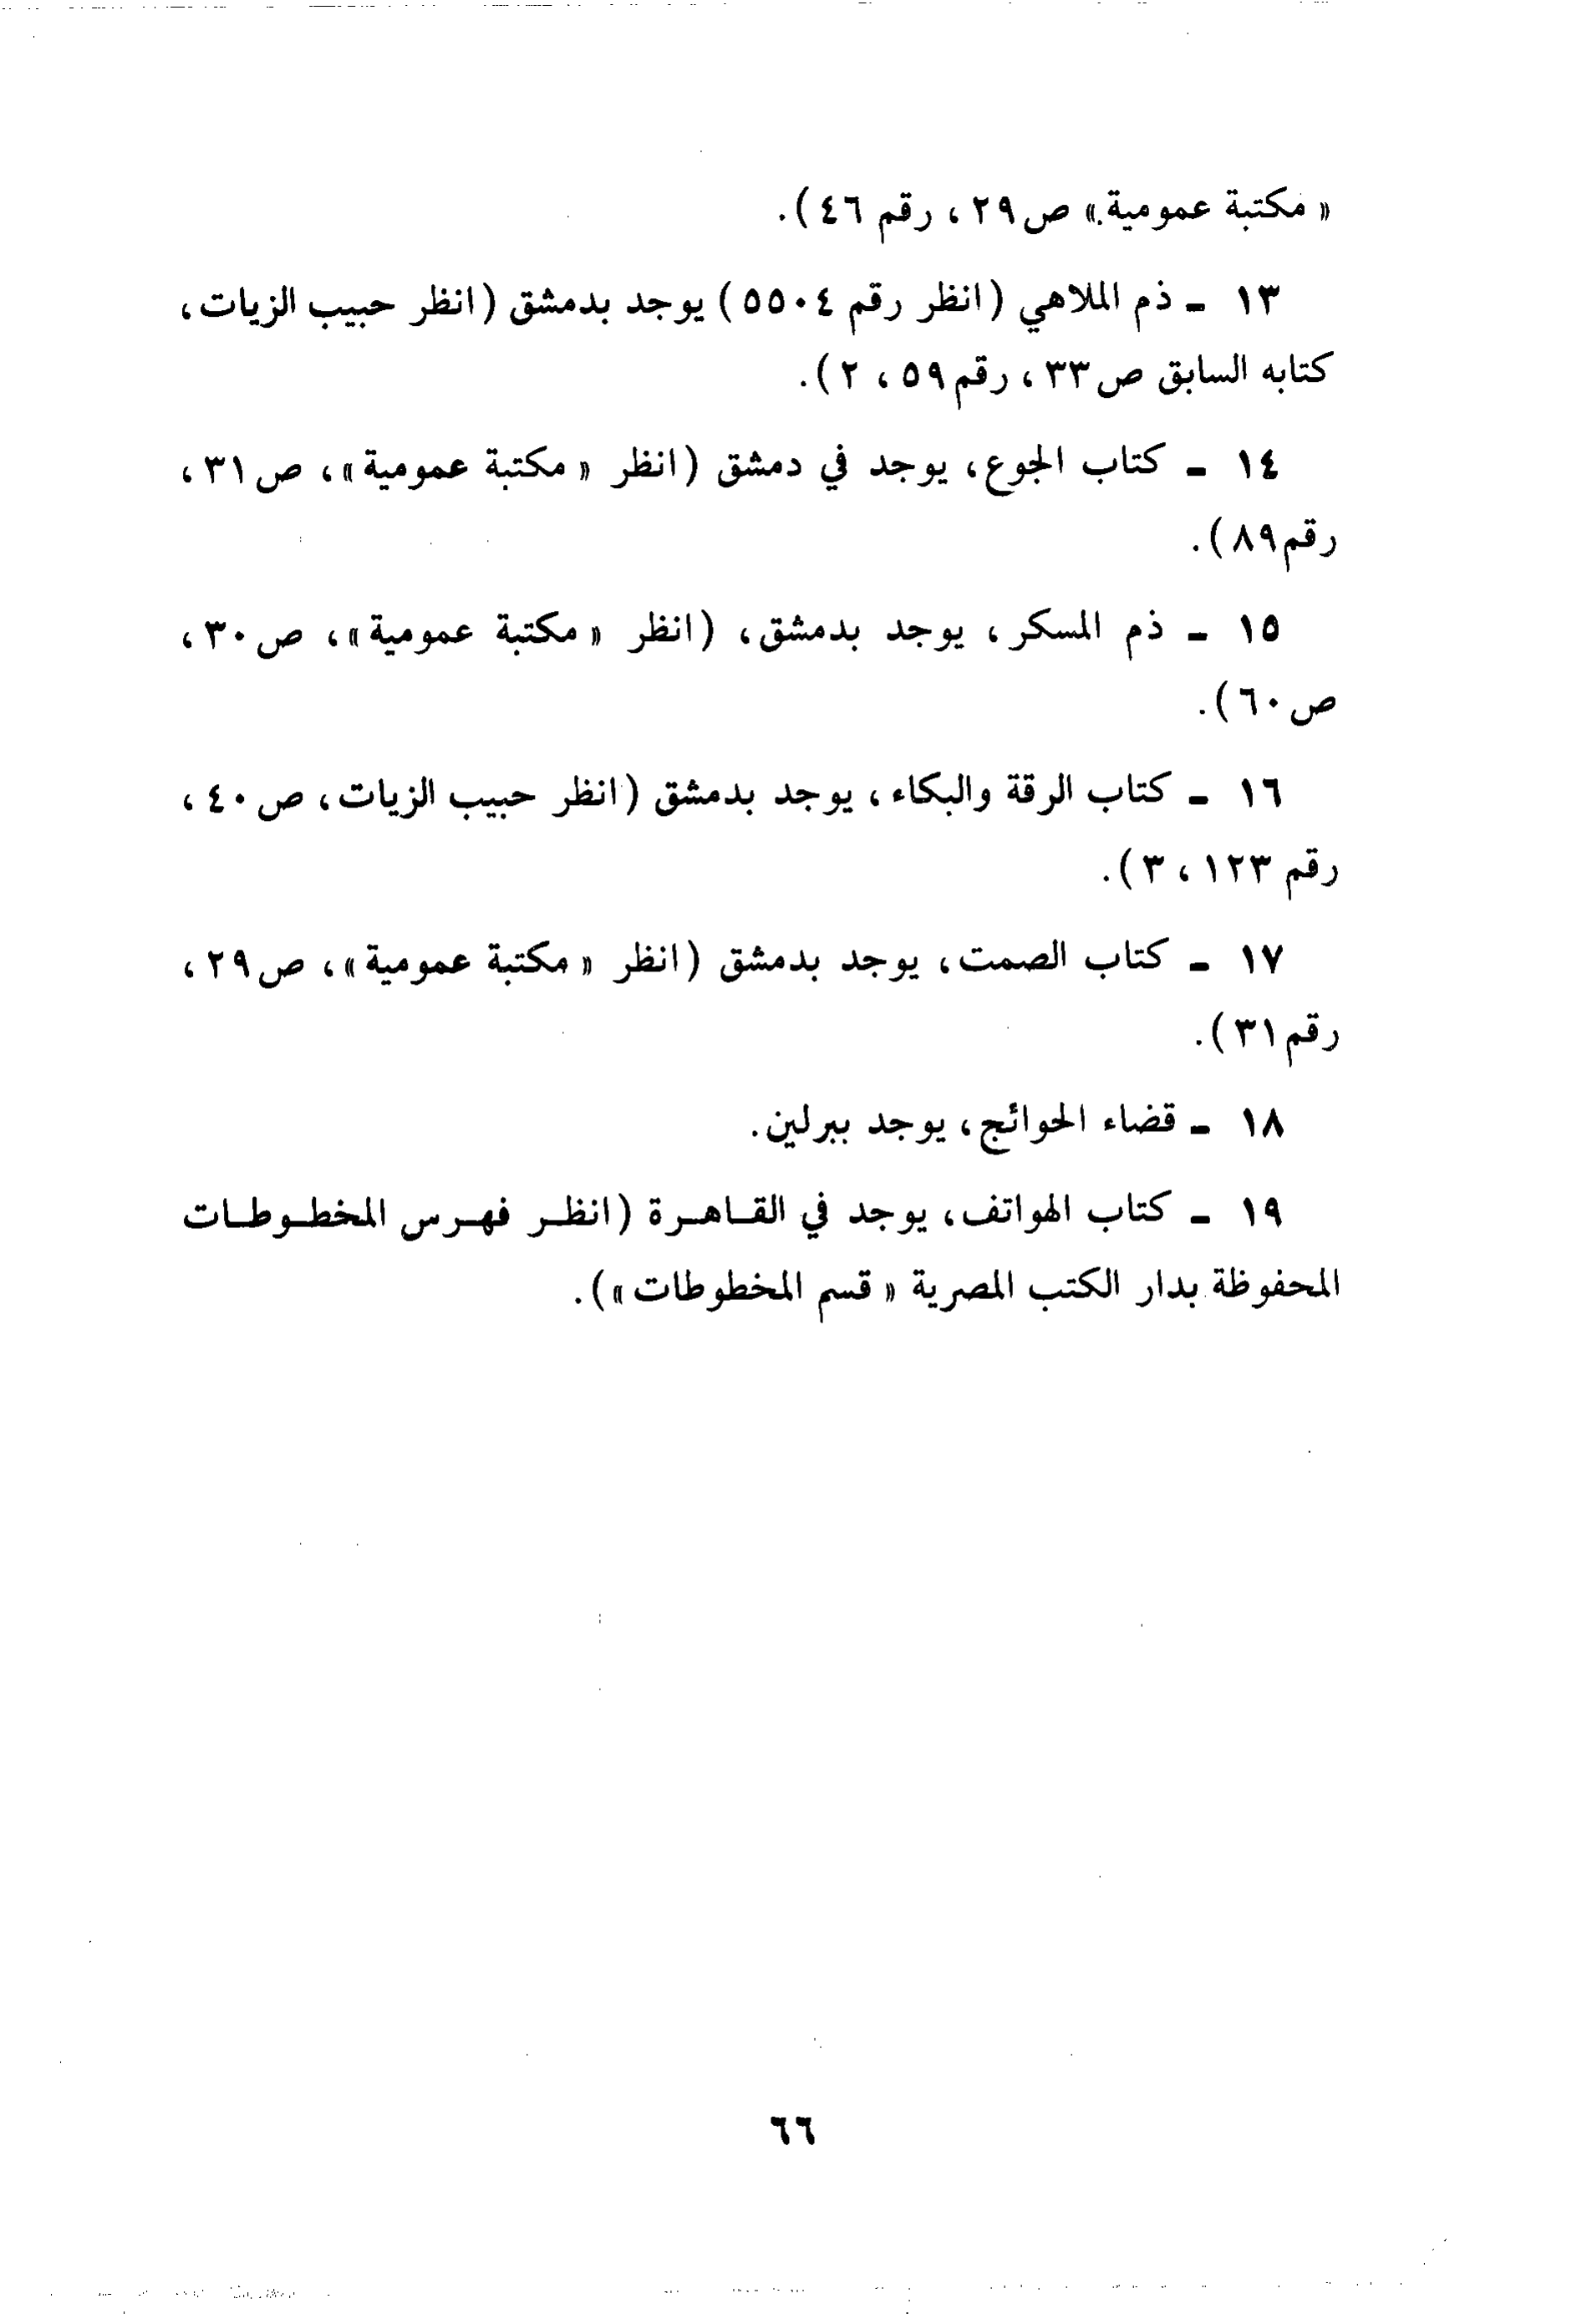 « مكتبة عمومية » ص٢٩، رقم ٤٦).
١٣ - ذم الملاهي (انظر رقم ٥٥٠٤) يوجد بدمشق (انظر حبيب الزيات،
كتابه السابق ص٣٣، رقم٥٩، ٢).
١٤ - كتاب الجوع، يوجد في دمشق (انظر « مكتبة عمومية »، ص٣١،
رقم٨٩).
١٥ - ذم المسكر، يوجد بدمشق، (انظر « مكتبة عمومية »، ص٣٠،
ص٦٠).
١٦ - كتاب الرقة والبكاء، يوجد بدمشق (انظر حبيب الزيات، ص٤٠،
رقم ١٢٣، ٣).
١٧ - كتاب الصمت، يوجد بدمشق (انظر « مكتبة عمومية »، ص٢٩،
رقم٣١).
١٨ - قضاء الحوائج، يوجد ببرلين.
١٩ - كتاب الهواتف، يوجد في القاهرة (انظر فهرس المخطوطات
المحفوظة بدار الكتب المصرية « قسم المخطوطات »).
٦٦